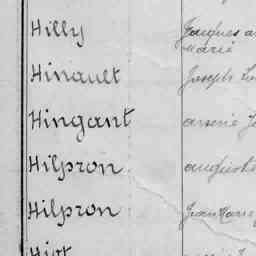 Hilly Jacques
Marie
Hinault Joseph
Hingant arsene
Hilpron auguste
Hilpron Jean Marie